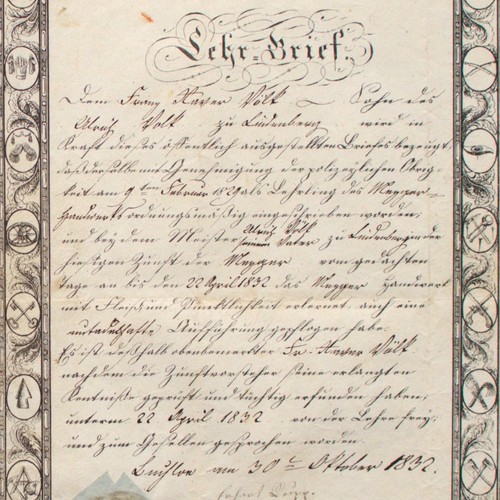 Lehr=Brief.
Dem Franz Xaver Völk – Sohn des
Ulrich Volk zu Lindenberg wird in
Kraft dieses öffentlich ausgestellten Briefes bezeugt,
daß derselbe mit Genehmigung der polizeylichen Obrig=
keit am 9ten Februar 1829 als Lehrling des Mezger
Handwerks ordnungsmäßig eingeschrieben worden,
und bey dem Meister Ulrich Völk seinem Vater zu Lindenberg in der
hiesigen Zunft der Mezger vom gedachten
tage an bis den 22 April 1832 das Mezger Handwerk
mit Fleiß und Pünktlichkeit erlernet, auch eine
untadelhafte Aufführung gepflogen habe.
Es ist deßhalb obenbemerkter Fr. Xaver Völk
nachdem die Zunftvorsteher seine erlangten
Kentniße geprüft und tüchtig erfunden haben,
unterm 22 April 1832 von der Lehre frey,
und zum Gesellen gesprochen worden.
Buchloe am 30te Oktober 1832.